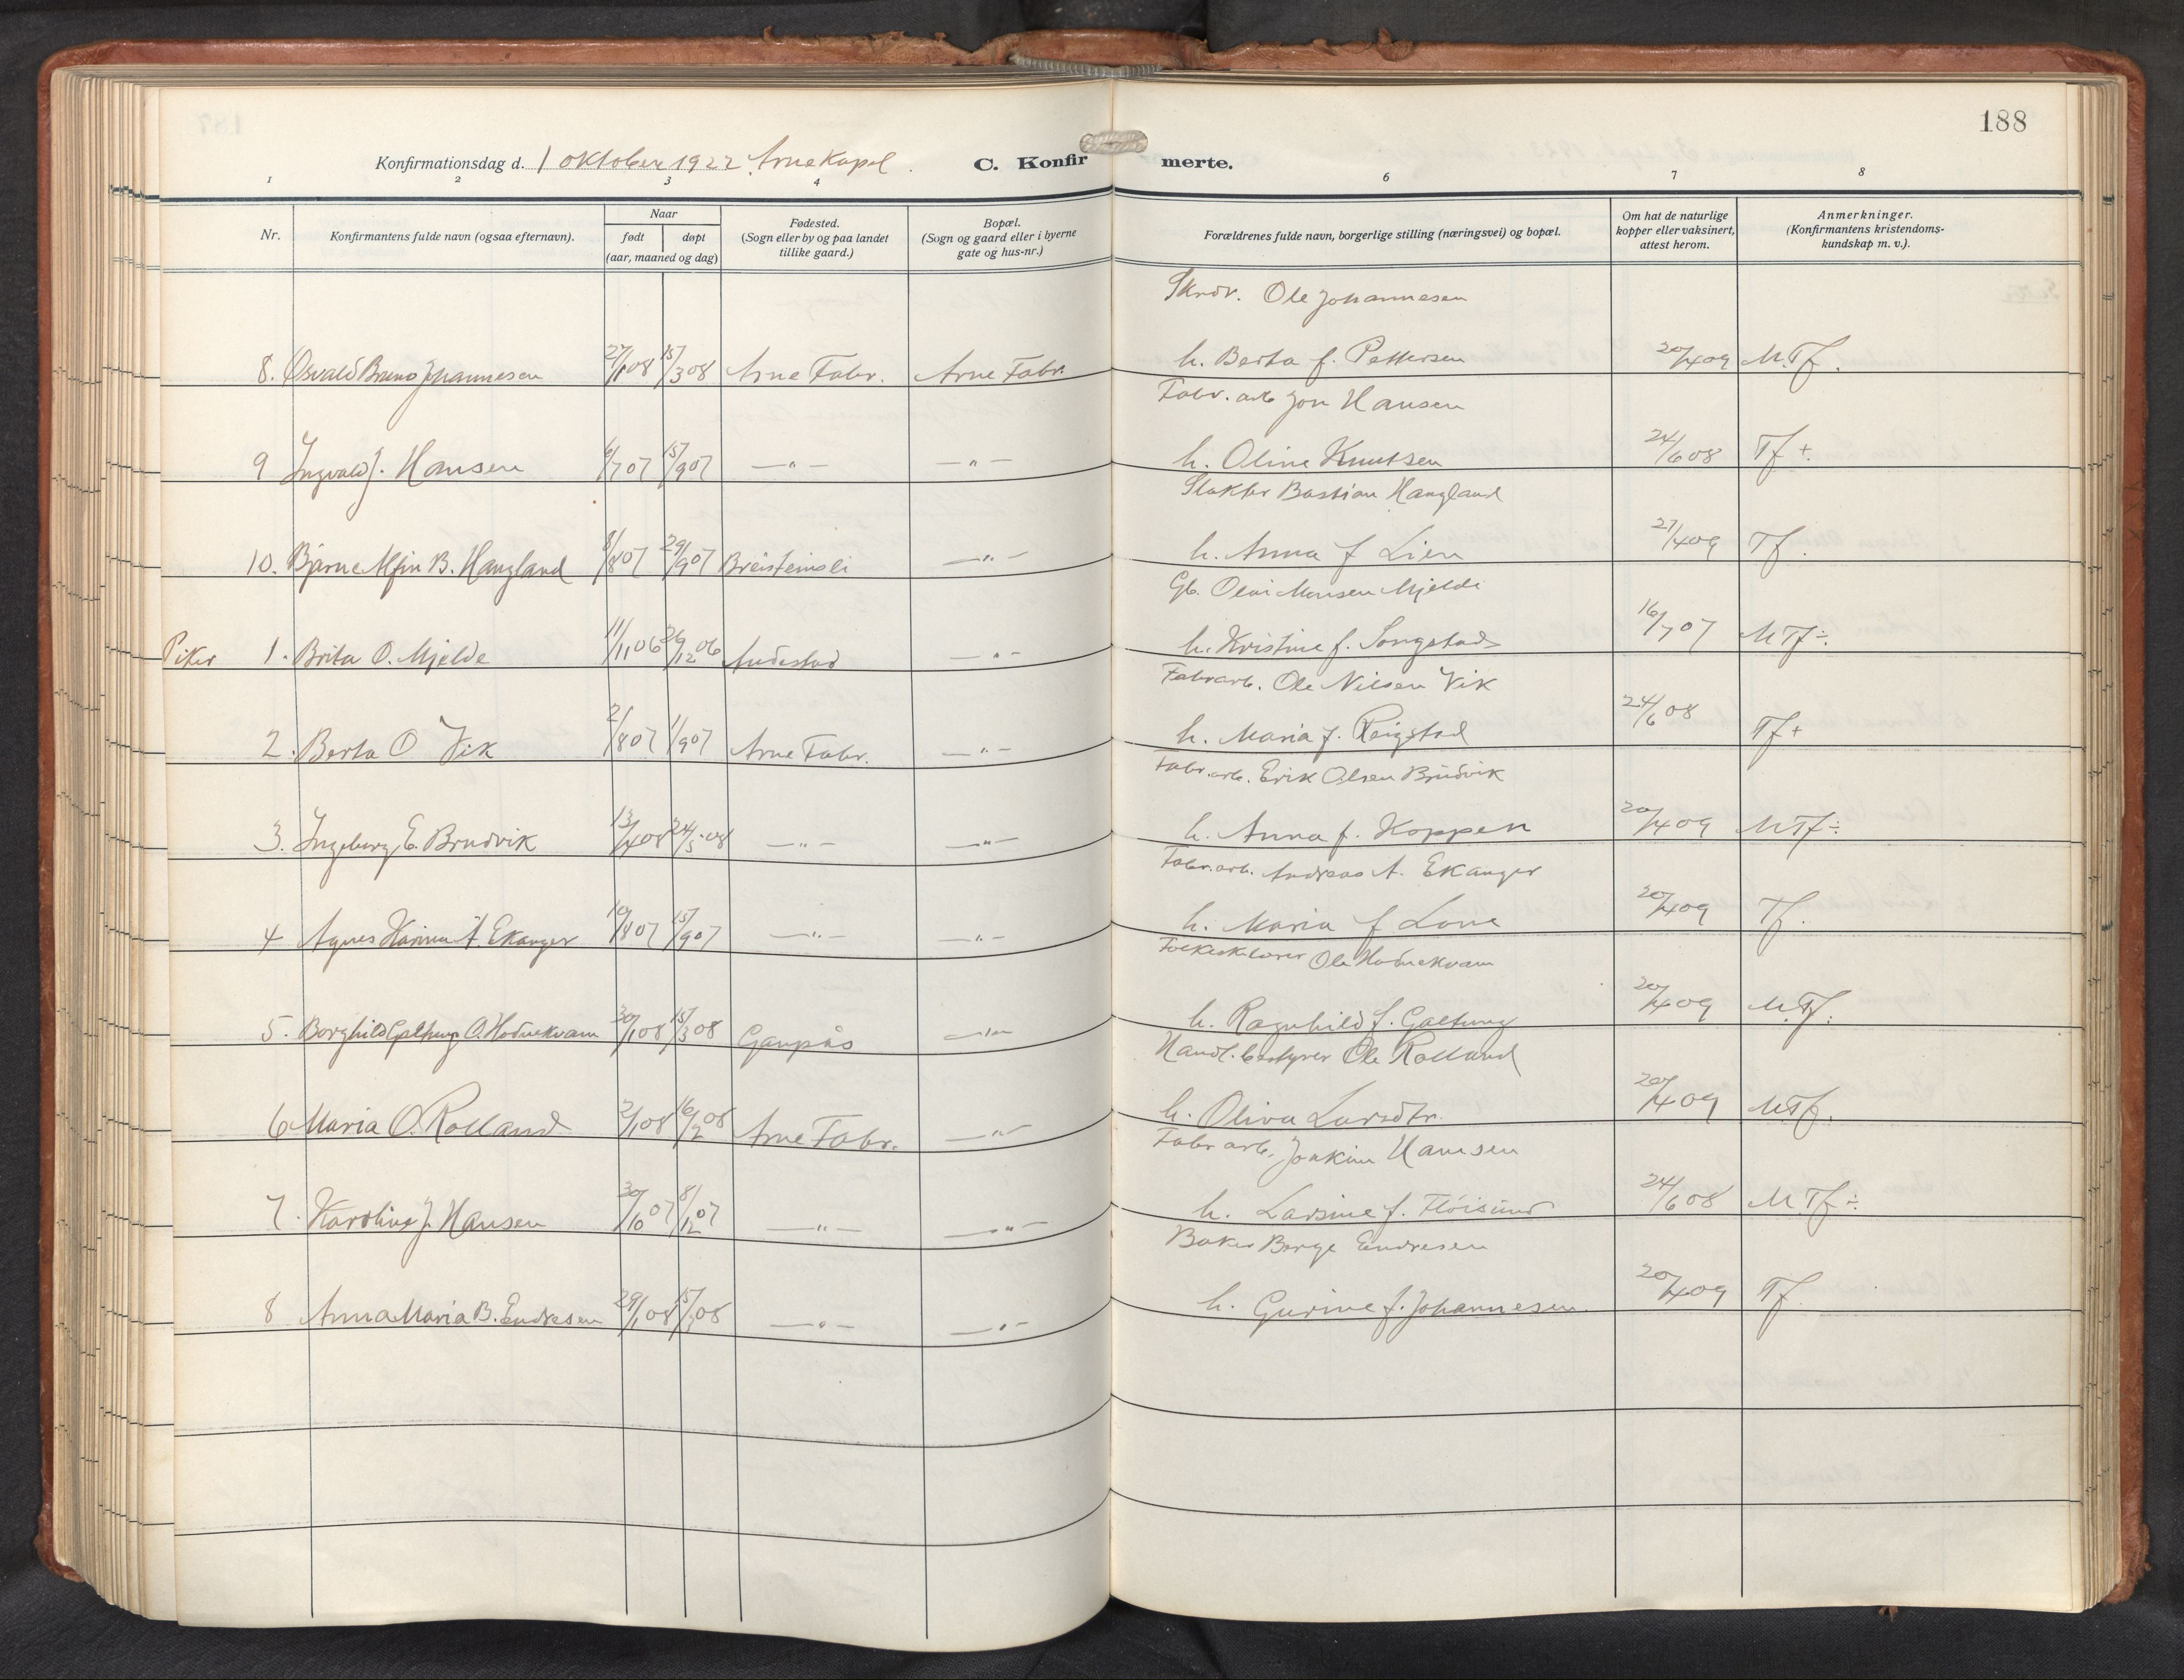 188
Konfirmationsdag d. 1 oktober 1922 Arne Kapel.
C. Konfirmerte.
1 2 3 4 6 7 8
Nr.
Konfirmantens fulde navn (ogsaa efternavn).
Naar
født døpt
(aar, maaned og dag)
Fødested.
(Sogn eller by og paa landet
tillike gaard.)
Bopæl.
(Sogn og gaard eller i byerne
gate og hus-nr.)
Forældrenes fulde navn, borgerlige stilling (næringsvei) og bopæl.
Om hat de naturlige
kopper eller vaksinert,
attest herom.
Anmerkninger.
(Konfirmantens kristendoms-
kundskap m. v.).
Skrdr. Ole Johannesen
8. Osvald Bruno Johannesen 27/1 08 15/3 08 Arne Fabr. Arne Fabr. h. Berta f. Pettersen 20/4 09 M.Tf.
Fabr. arb Jon Hansen
9 Ingvald J. Hansen 6/7 07 15/9 07 —"— —"— h. Oline Knutsen 24/6 08 Tf +.
Slakter Bastian Haugland
10. Bjarne Alfin B. Haugland 8/8 07 29/9 07 Breisteinsli —"— h. Anna f Lien 27/4 09 Tf.
Gb. Olai Monsen Mjelde
Piker 1. Brita O. Mjelde 11/11 06 26/12 06 —"— h. Kristine f. Songstad 16/7 07 M Tf ÷.
Fabrarb. Ole Nilsen Vik
2. Berta O Vik 2/8 07 1/9 07 Arne Fabr. —"— h. Maria f. Reigstad 24/6 08 Tf +
Fabr.arb. Erik Olsen Brudvik
3. Ingeborg E. Brudvik 13/4 08 24/5 08 —"— —"— h. Anna f. Koppen 20/4 09 M Tf ÷
Fabr.arb. Andreas A. Ekanger
4 Agnes Karina A. Ekanger 10/8 07 15/9 07 —"— —"— h. Maria f Lone 20/4 09 Tf.
Folkeskolærer Ole Hodnekvam
5. Borghild Galtung O. Hodnekvam 30/1 08 15/3 08 Garpås —"— h. Ragnhild f. Galtung 20/4 09 M.Tf.
Handl. bestyrer Ole Rolland
6 Maria O. Rolland 2/1 08 16/2 08 Arne Fabr. —"— h. Oliva Larsdtr. 20/4 09 M.Tf.
Fabr arb. Joakim Hansen
7. Karoline J. Hansen 30/10 07 8/12 07 —"— —"— h. Larsine f. Fløisund 24/6 08 M Tf ÷
Baker Børge Endresen
8 Anna Maria B. Endresen 29/1 08 15/3 08 —"— —"— h. Gurine f. Johannesen. 20/4 09 Tf